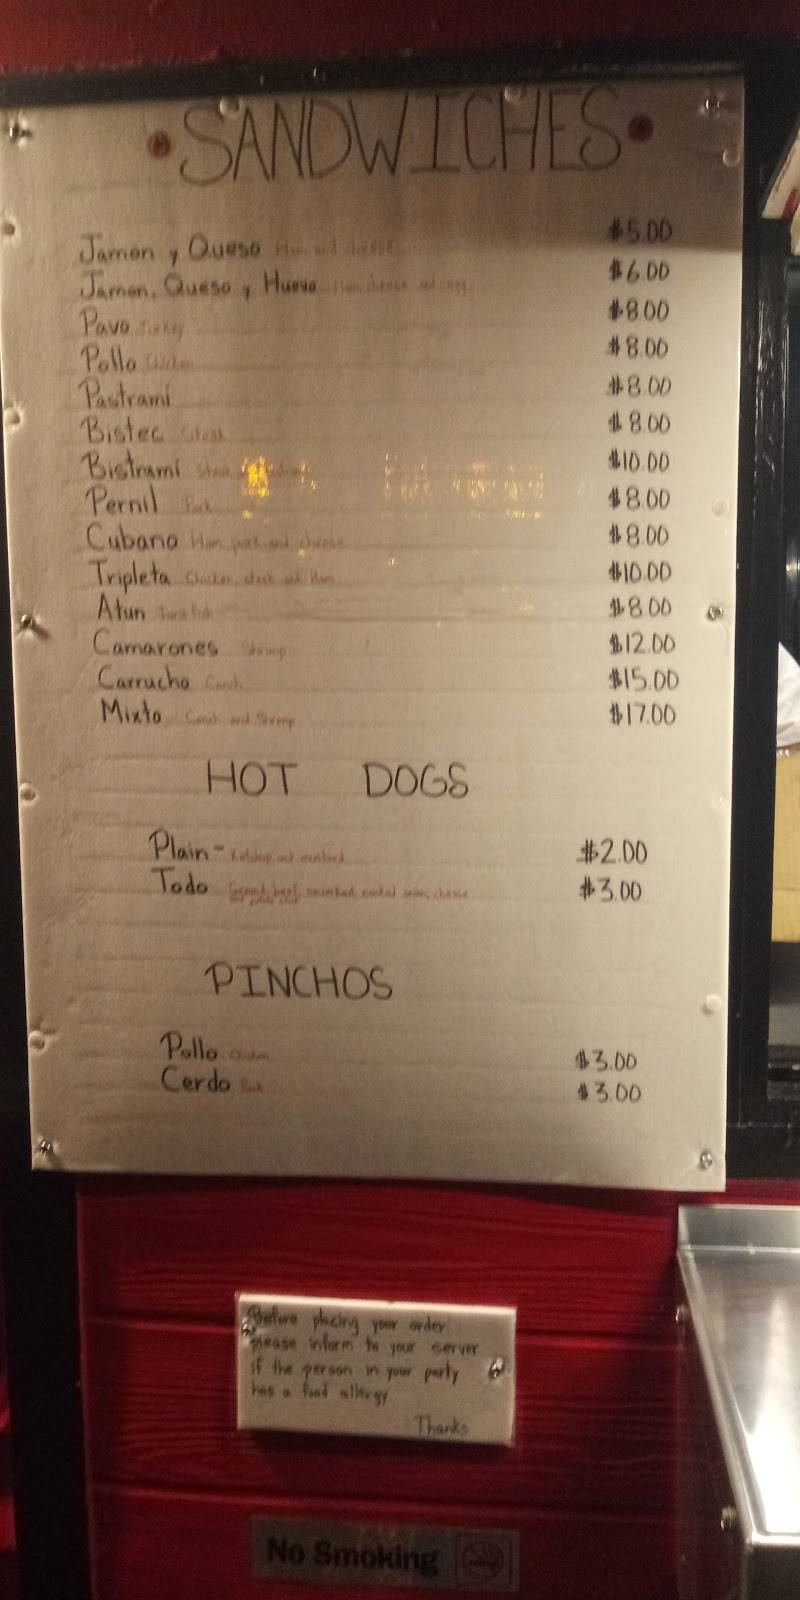 • SANDWICHES •
Jamon y Queso Ham and cheese $5.00
Jamon, Queso y Huevo Ham, cheese and egg $6.00
Pavo Turkey $8.00
Pollo Chicken $8.00
Pastrami $8.00
Bistec Steak $8.00
Bistrami Steak $10.00
Pernil Pork $8.00
Cubano Ham, pork and cheese $8.00
Tripleta Chicken, steak and Ham $10.00
Atun Tuna fish $8.00
Camarones Shrimp $12.00
Carrucho Conch $15.00
Mixto Conch and Shrimp $17.00
HOT DOGS
Plain - Ketchup and mustard $2.00
Todo Ground beef, cheese $3.00
PINCHOS
Pollo Chicken $3.00
Cerdo Pork $3.00
Before placing your order
please inform to your server
if the person in your party
has a food allergy
Thanks
No Smoking